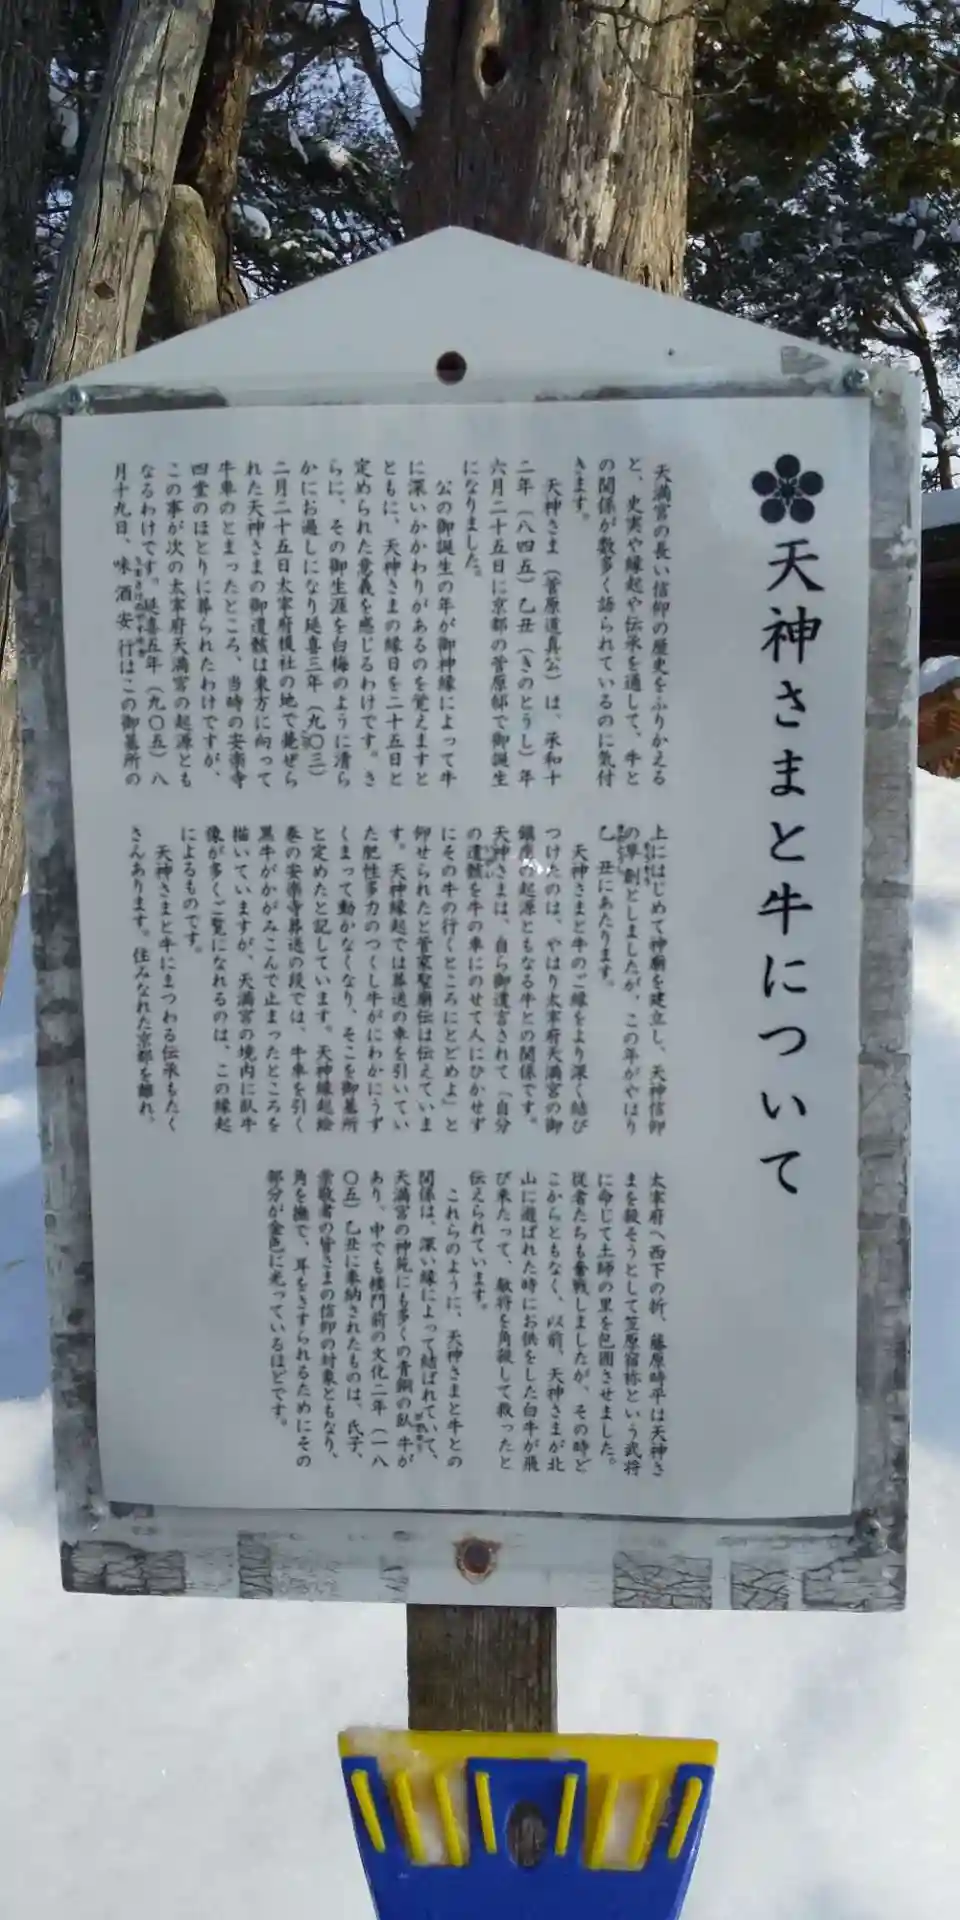 天神さまと牛について
天満宮の長い信仰の歴史をふりかえる
と、史実や縁起や伝承を通して、牛と
の関係が数多く語られているのに気付
きます。
天神さま（菅原道真公）は、承和十
二年（八四五）乙丑（きのとうし）年
六月二十五日に京都の菅原邸で御誕生
になりました。
公の御誕生の年が御神縁によって牛
に深いかかわりがあるのを覚えますと
ともに、天神さまの縁日を二十五日と
定められた意義を感じるわけです。さ
らに、その御生涯を白梅のように清ら
かにお過しになり延喜三年（九〇三）
二月二十五日太宰府榎社の地で薨ぜら
れた天神さまの御遺骸は東方に向って
牛車のとまったところ、当時の安楽寺
四堂のほとりに葬られたわけですが、
この事が次の太宰府天満宮の起源とも
なるわけです。延喜五年（九〇五）八
月十九日、味酒安行はこの御墓所の
上にはじめて神廟を建立し、天神信仰
の草創としましたが、この年がやはり
乙丑にあたります。
天神さまと牛のご縁をより深く結び
つけたのは、やはり太宰府天満宮の御
鎮座の起源ともなる牛との関係です。
天神さまは、自ら御遺言されて「自分
の遺骸を牛の車にのせて人にひかせず
にその牛の行くところにとどめよ」と
仰せられたと菅家聖廟伝は伝えていま
す。天神縁起では葬送の車を引いてい
た肥性多力のつくし牛がにわかにうず
くまって動かなくなり、そこを御墓所
と定めたと記しています。天神縁起絵
巻の安楽寺葬送の段では、牛車を引く
黒牛がかがみこんで止まったところを
描いていますが、天満宮の境内に臥牛
像が多くご覧になれるのは、この縁起
によるものです。
天神さまと牛にまつわる伝承もたく
さんあります。住みなれた京都を離れ、
太宰府へ西下の折、藤原時平は天神さ
まを殺そうとして笠原宿祢という武将
に命じて土師の里を包囲させました。
従者たちも奮戦しましたが、その時ど
こからともなく、以前、天神さまが北
山に遊ばれた時にお供をした白牛が飛
び来たって、敵将を角殺して救ったと
伝えられています。
これらのように、天神さまと牛との
関係は、深い縁によって結ばれていて、
天満宮の神苑にも多くの青銅の臥牛が
あり、中でも楼門前の文化二年（一八
〇五）乙丑に奉納されたものは、氏子、
崇敬者の皆さまの信仰の対象ともなり、
角を撫で、耳をさすられるためにその
部分が金色に光っているほどです。